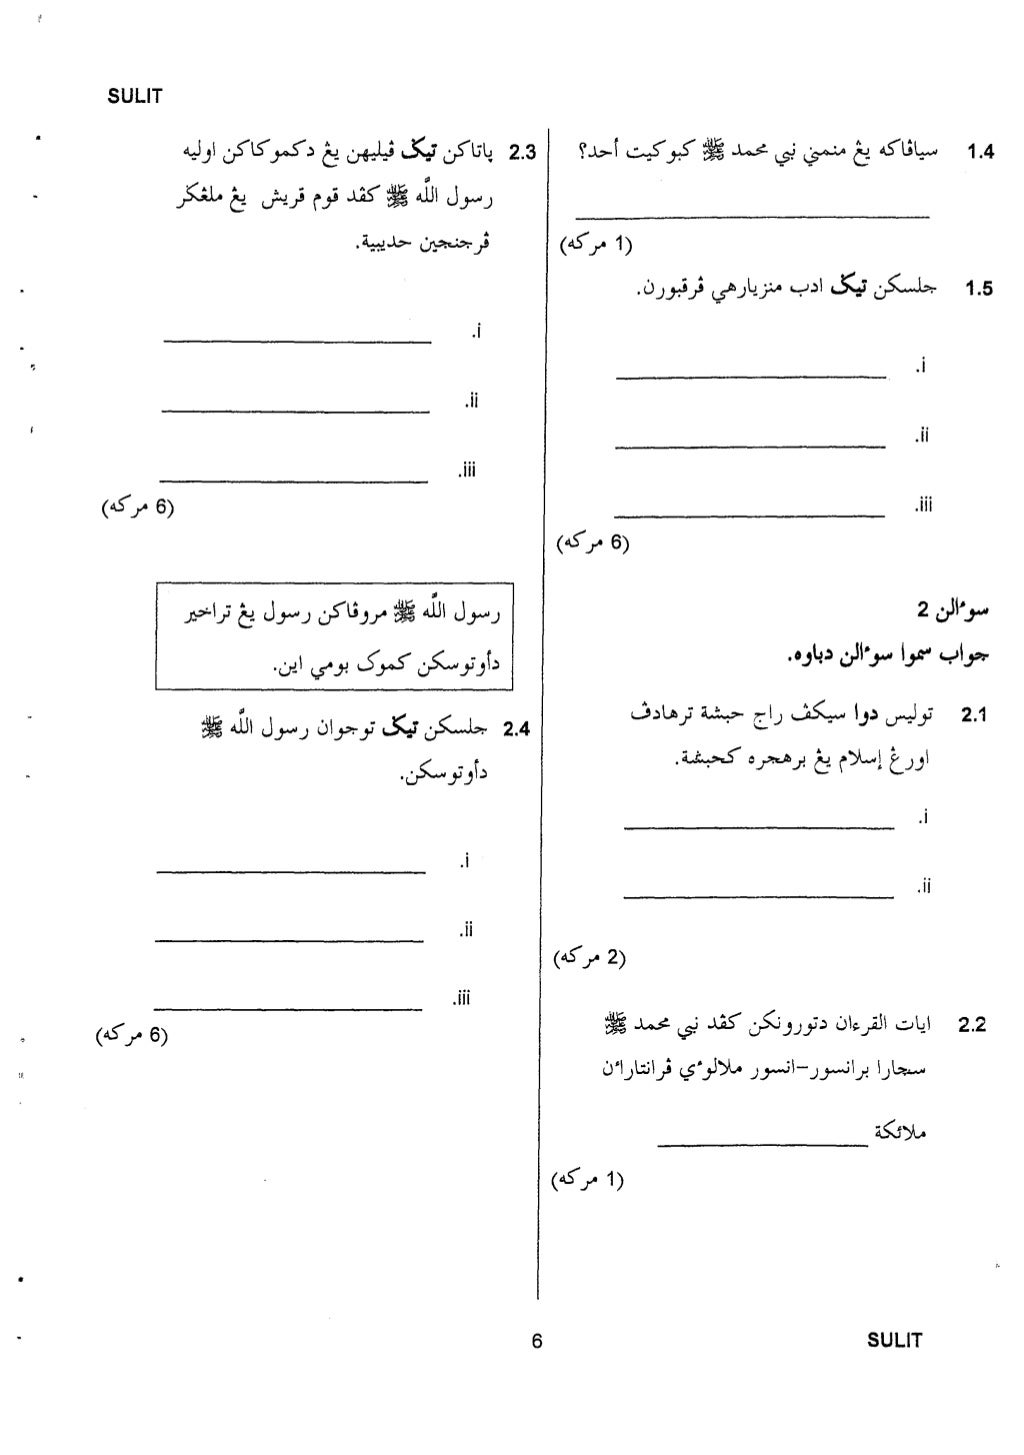 SULIT
1.4 سياڤاكه يڠ منمني نبي محمد ﷺ كبوكيت أحد؟
(1 مركه)
1.5 جلسكن تيݢ ادب منزيارهي ڤرقبورن.
.i
.ii
.iii
(6 مركه)
سوءالن 2
جواب سموا سوءالن دباوه.
2.1 توليس دوا سيكڤ راج حبشة ترهادڤ
اورڠ إسلام يڠ برهجره كحبشة.
.i
.ii
(2 مركه)
2.2 ايات القرءان دتورونكن كڤد نبي محمد ﷺ
سچارا برانسور-انسور ملالوءي ڤرانتاراءن
ملائكة
(1 مركه)
2.3 ڽاتاكن تيݢ ڤيليهن يڠ دكموكاكن اوليه
رسول الله ﷺ كڤد قوم قريش يڠ ملڠݢر
ڤرجنجين حديبية.
.i
.ii
.iii
(6 مركه)
رسول الله ﷺ مروڤاكن رسول يڠ تراخير
دأوتوسكن كموك بومي اين.
2.4 جلسكن تيݢ توجوان رسول الله ﷺ
دأوتوسكن.
.i
.ii
.iii
(6 مركه)
6
SULIT